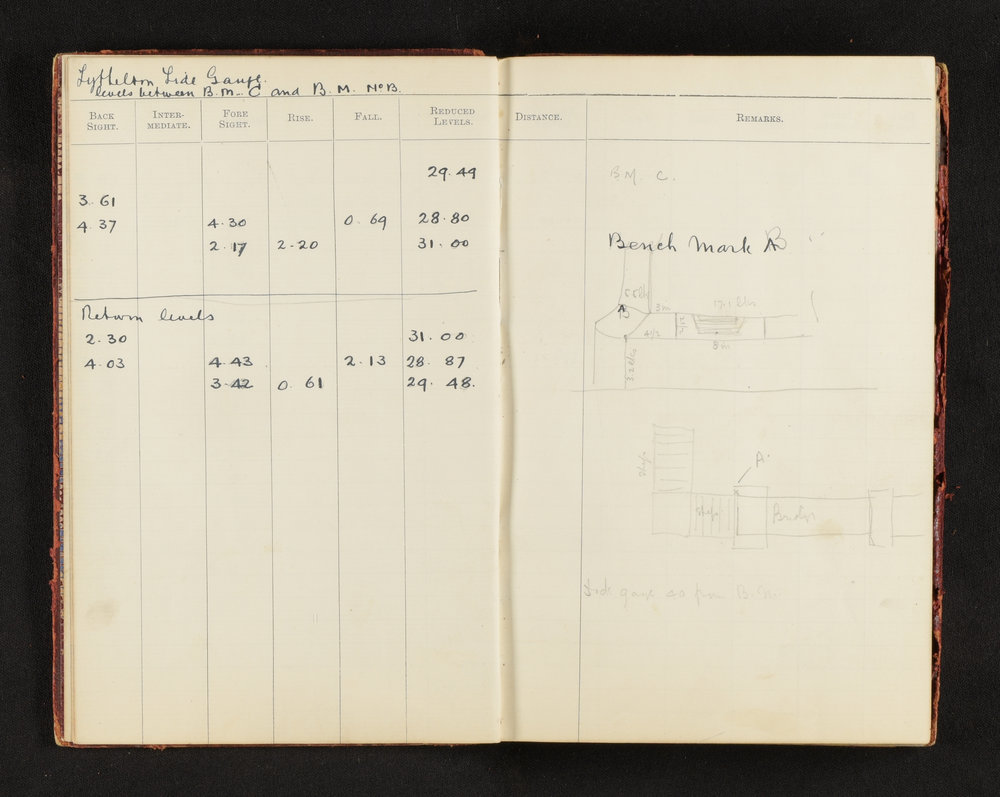 Lyttelton Tide Gauge.
levels between B.M. C and B. M. No B.
BACK SIGHT. INTER-MEDIATE. FORE SIGHT. RISE. FALL. REDUCED LEVELS. DISTANCE. REMARKS.
29.49 B M. C.
3.61
4.37 4.30 0.69 28.80
2.17 2.20 31.00 Bench Mark A B
Return levels
2.30 31.00
4.03 4.43 2.13 28.87
3.42 0.61 29.48.
A 3m 17.1 lks
4 1/2 2 1/2 8m
3.2 lks
A
steps
steps Bridge
Tide gauge 40 from B.M.